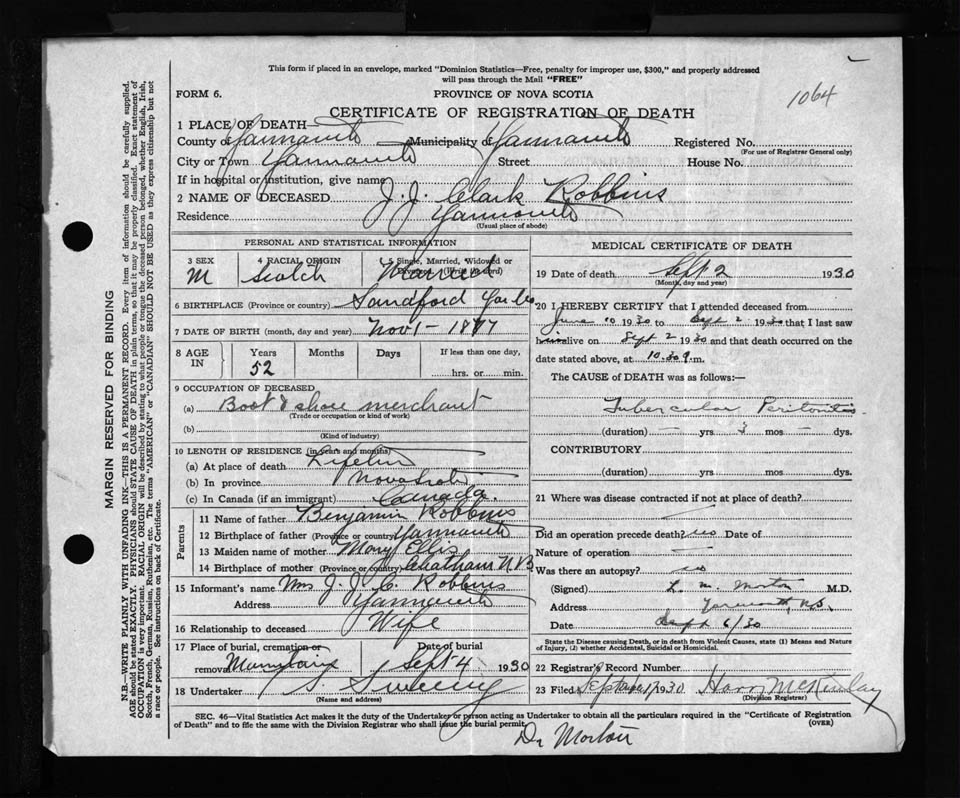 This form if placed in an envelope, marked "Dominion Statistics—Free, penalty for improper use, $300," and properly addressed
will pass through the Mail "FREE"
FORM 6. PROVINCE OF NOVA SCOTIA
1064
CERTIFICATE OF REGISTRATION OF DEATH
1 PLACE OF DEATH
County of Yarmouth Municipality of Yarmouth Registered No.
(For use of Registrar General only)
City or Town Yarmouth Street House No.
If in hospital or institution, give name
2 NAME OF DECEASED J. J. Clark Robbins
Residence Yarmouth
(Usual place of abode)
PERSONAL AND STATISTICAL INFORMATION
3 SEX 4 RACIAL ORIGIN 5 Single, Married, Widowed or
Divorced (Write the word)
M Scotch Married
6 BIRTHPLACE (Province or country) Sandford Yar Co
7 DATE OF BIRTH (month, day and year) Nov 1 - 1877
8 AGE IN Years Months Days If less than one day,
52 hrs. or min.
9 OCCUPATION OF DECEASED
(a) Boot & shoe merchant
(Trade or occupation or kind of work)
(b)
(Kind of industry)
10 LENGTH OF RESIDENCE (in years and months)
(a) At place of death Lifetime
(b) In province Nova Scotia
(c) In Canada (if an immigrant) Canada.
Parents
11 Name of father Benjamin Robbins
12 Birthplace of father (Province or country) Yarmouth
13 Maiden name of mother Mary Ellis
14 Birthplace of mother (Province or country) Chatham N.B
15 Informant's name Mrs J. J. C. Robbins
Address Yarmouth
16 Relationship to deceased Wife
17 Place of burial, cremation or Date of burial
removal Sept 4 1930
18 Undertaker Sweeny
(Name and address)
MEDICAL CERTIFICATE OF DEATH
19 Date of death Sept 2 1930
(Month, day and year)
20 I HEREBY CERTIFY that I attended deceased from
June 10 1930 to Sept 2 1930 that I last saw
him alive on Sept 2 1930 and that death occurred on the
date stated above, at 10.30 m.
The CAUSE OF DEATH was as follows:
Tubercular Peritonitis
(duration) — yrs 3 mos — dys.
CONTRIBUTORY
(duration) yrs. mos. dys.
21 Where was disease contracted if not at place of death?
Did an operation precede death? no Date of
Nature of operation —
Was there an autopsy? no
(Signed) L. M. Morton M.D.
Address Yarmouth, N.S.
Date Sept 6/30
State the Disease causing Death, or in death from Violent Causes, state (1) Means and Nature
of Injury, (2) whether Accidental, Suicidal or Homicidal.
22 Registrar's Record Number
23 Filed September 1930 McKinlay
(Division Registrar)
SEC. 46—Vital Statistics Act makes it the duty of the Undertaker or person acting as Undertaker to obtain all the particulars required in the "Certificate of Registration
of Death" and to file the same with the Division Registrar who shall issue the burial permit. (OVER)
Dr Morton
MARGIN RESERVED FOR BINDING
N.B.—WRITE PLAINLY WITH UNFADING INK—THIS IS A PERMANENT RECORD. Every item of information should be carefully supplied.
AGE should be stated EXACTLY. PHYSICIANS should STATE CAUSE OF DEATH in plain terms, so that it may be properly classified. Exact statement of
OCCUPATION is very important. RACIAL ORIGIN will be described by stating to what people or tongue the deceased person belonged, whether English, Irish,
Scotch, French, German, Russian, Ruthenian, etc. The terms "AMERICAN" or "CANADIAN" SHOULD NOT BE USED as they express citizenship but not
a race or people. See instructions on back of Certificate.